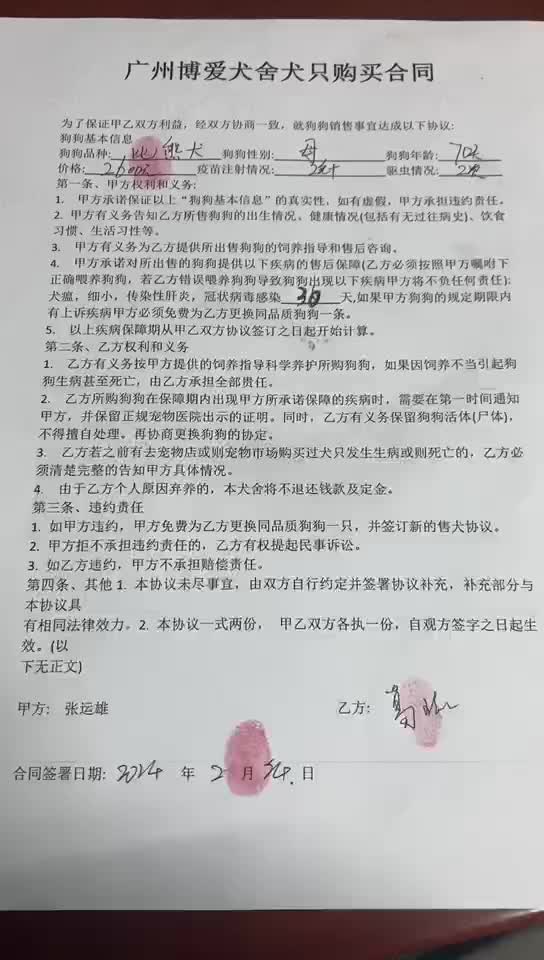 广州博爱犬舍犬只购买合同
为了保证甲乙双方利益，经双方协商一致，就狗狗销售事宜达成以下协议:
狗狗基本信息
狗狗品种: 比熊犬 狗狗性别: 母 狗狗年龄: 70天
价格: 2600元 疫苗注射情况: 2针 驱虫情况: 2次
第一条、甲方权利和义务:
1. 甲方承诺保证以上“狗狗基本信息”的真实性，如有虚假，甲方承担违约责任。
2. 甲方有义务告知乙方所售狗狗的出生情况、健康情况(包括有无过往病史)、饮食
习惯、生活习性等。
3. 甲方有义务为乙方提供所出售狗狗的饲养指导和售后咨询。
4. 甲方承诺对所出售的狗狗提供以下疾病的售后保障(乙方必须按照甲方嘱咐下
正确喂养狗狗，若乙方错误喂养狗狗导致狗狗出现以下疾病甲方将不负任何责任):
犬瘟，细小，传染性肝炎，冠状病毒感染 30 天,如果甲方狗狗的规定期限内
有上诉疾病甲方必须免费为乙方更换同品质狗狗一条。
5. 以上疾病保障期从甲乙双方协议签订之日起开始计算。
第二条、乙方权利和义务
1. 乙方有义务按甲方提供的饲养指导科学养护所购狗狗，如果因饲养不当引起狗
狗生病甚至死亡，由乙方承担全部责任。
2. 乙方所购狗狗在保障期内出现甲方所承诺保障的疾病时，需要在第一时间通知
甲方，并保留正规宠物医院出示的证明。同时，乙方有义务保留狗狗活体(尸体)，
不得擅自处理。再协商更换狗狗的协定。
3. 乙方若之前有去宠物店或则宠物市场购买过犬只发生生病或则死亡的，乙方必
须清楚完整的告知甲方具体情况。
4. 由于乙方个人原因弃养的，本犬舍将不退还钱款及定金。
第三条、违约责任
1. 如甲方违约，甲方免费为乙方更换同品质狗狗一只，并签订新的售犬协议。
2. 甲方拒不承担违约责任的，乙方有权提起民事诉讼。
3. 如乙方违约，甲方不承担赔偿责任。
第四条、其他 1. 本协议未尽事宜，由双方自行约定并签署协议补充，补充部分与
本协议具
有相同法律效力。2. 本协议一式两份， 甲乙双方各执一份，自观方签字之日起生
效。(以
下无正文)
甲方: 张运雄 乙方:
合同签署日期: 2024 年 2 月 24. 日